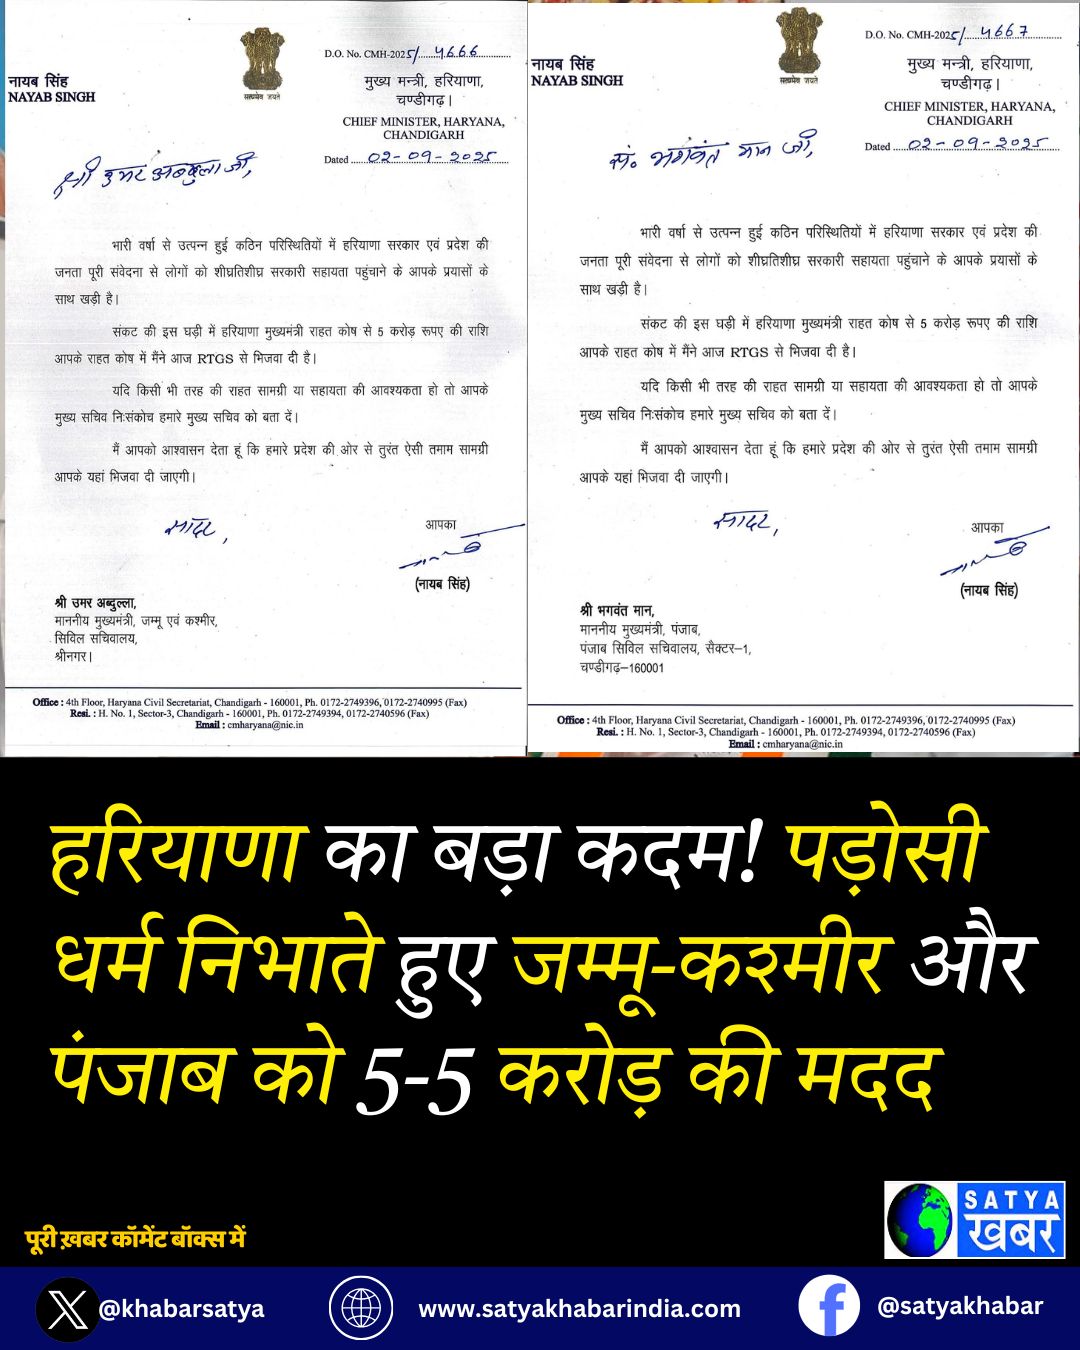 नायब सिंह
NAYAB SINGH
सत्यमेव जयते
D.O. No. CMH-2025/ 4666
मुख्य मन्त्री, हरियाणा,
चण्डीगढ़।
CHIEF MINISTER, HARYANA,
CHANDIGARH
Dated 02-09-2025
श्री उमर अब्दुल्ला जी,
भारी वर्षा से उत्पन्न हुई कठिन परिस्थितियों में हरियाणा सरकार एवं प्रदेश की
जनता पूरी संवेदना से लोगों को शीघ्रतिशीघ्र सरकारी सहायता पहुंचाने के आपके प्रयासों के
साथ खड़ी है।
संकट की इस घड़ी में हरियाणा मुख्यमंत्री राहत कोष से 5 करोड़ रूपए की राशि
आपके राहत कोष में मैंने आज RTGS से भिजवा दी है।
यदि किसी भी तरह की राहत सामग्री या सहायता की आवश्यकता हो तो आपके
मुख्य सचिव नि:संकोच हमारे मुख्य सचिव को बता दें।
मैं आपको आश्वासन देता हूं कि हमारे प्रदेश की ओर से तुरंत ऐसी तमाम सामग्री
आपके यहां भिजवा दी जाएगी।
सादर,
आपका
(नायब सिंह)
श्री उमर अब्दुल्ला,
माननीय मुख्यमंत्री, जम्मू एवं कश्मीर,
सिविल सचिवालय,
श्रीनगर।
Office : 4th Floor, Haryana Civil Secretariat, Chandigarh - 160001, Ph. 0172-2749396, 0172-2740995 (Fax)
Resi. : H. No. 1, Sector-3, Chandigarh - 160001, Ph. 0172-2749394, 0172-2740596 (Fax)
Email : cmharyana@nic.in
नायब सिंह
NAYAB SINGH
सत्यमेव जयते
D.O. No. CMH-2025/ 4667
मुख्य मन्त्री, हरियाणा,
चण्डीगढ़।
CHIEF MINISTER, HARYANA,
CHANDIGARH
Dated 02-09-2025
स. भगवंत मान जी,
भारी वर्षा से उत्पन्न हुई कठिन परिस्थितियों में हरियाणा सरकार एवं प्रदेश की
जनता पूरी संवेदना से लोगों को शीघ्रतिशीघ्र सरकारी सहायता पहुंचाने के आपके प्रयासों के
साथ खड़ी है।
संकट की इस घड़ी में हरियाणा मुख्यमंत्री राहत कोष से 5 करोड़ रूपए की राशि
आपके राहत कोष में मैंने आज RTGS से भिजवा दी है।
यदि किसी भी तरह की राहत सामग्री या सहायता की आवश्यकता हो तो आपके
मुख्य सचिव नि:संकोच हमारे मुख्य सचिव को बता दें।
मैं आपको आश्वासन देता हूं कि हमारे प्रदेश की ओर से तुरंत ऐसी तमाम सामग्री
आपके यहां भिजवा दी जाएगी।
सादर,
आपका
(नायब सिंह)
श्री भगवंत मान,
माननीय मुख्यमंत्री, पंजाब,
पंजाब सिविल सचिवालय, सैक्टर–1,
चण्डीगढ़–160001
Office : 4th Floor, Haryana Civil Secretariat, Chandigarh - 160001, Ph. 0172-2749396, 0172-2740995 (Fax)
Resi. : H. No. 1, Sector-3, Chandigarh - 160001, Ph. 0172-2749394, 0172-2740596 (Fax)
Email : cmharyana@nic.in
हरियाणा का बड़ा कदम! पड़ोसी
धर्म निभाते हुए जम्मू-कश्मीर और
पंजाब को 5-5 करोड़ की मदद
SATYA
खबर
पूरी ख़बर कॉमेंट बॉक्स में
@khabarsatya
www.satyakhabarindia.com
@satyakhabar